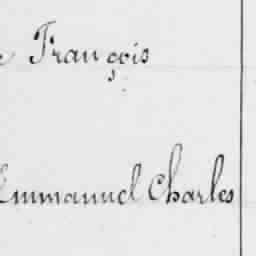 François
Emmanuel Charles